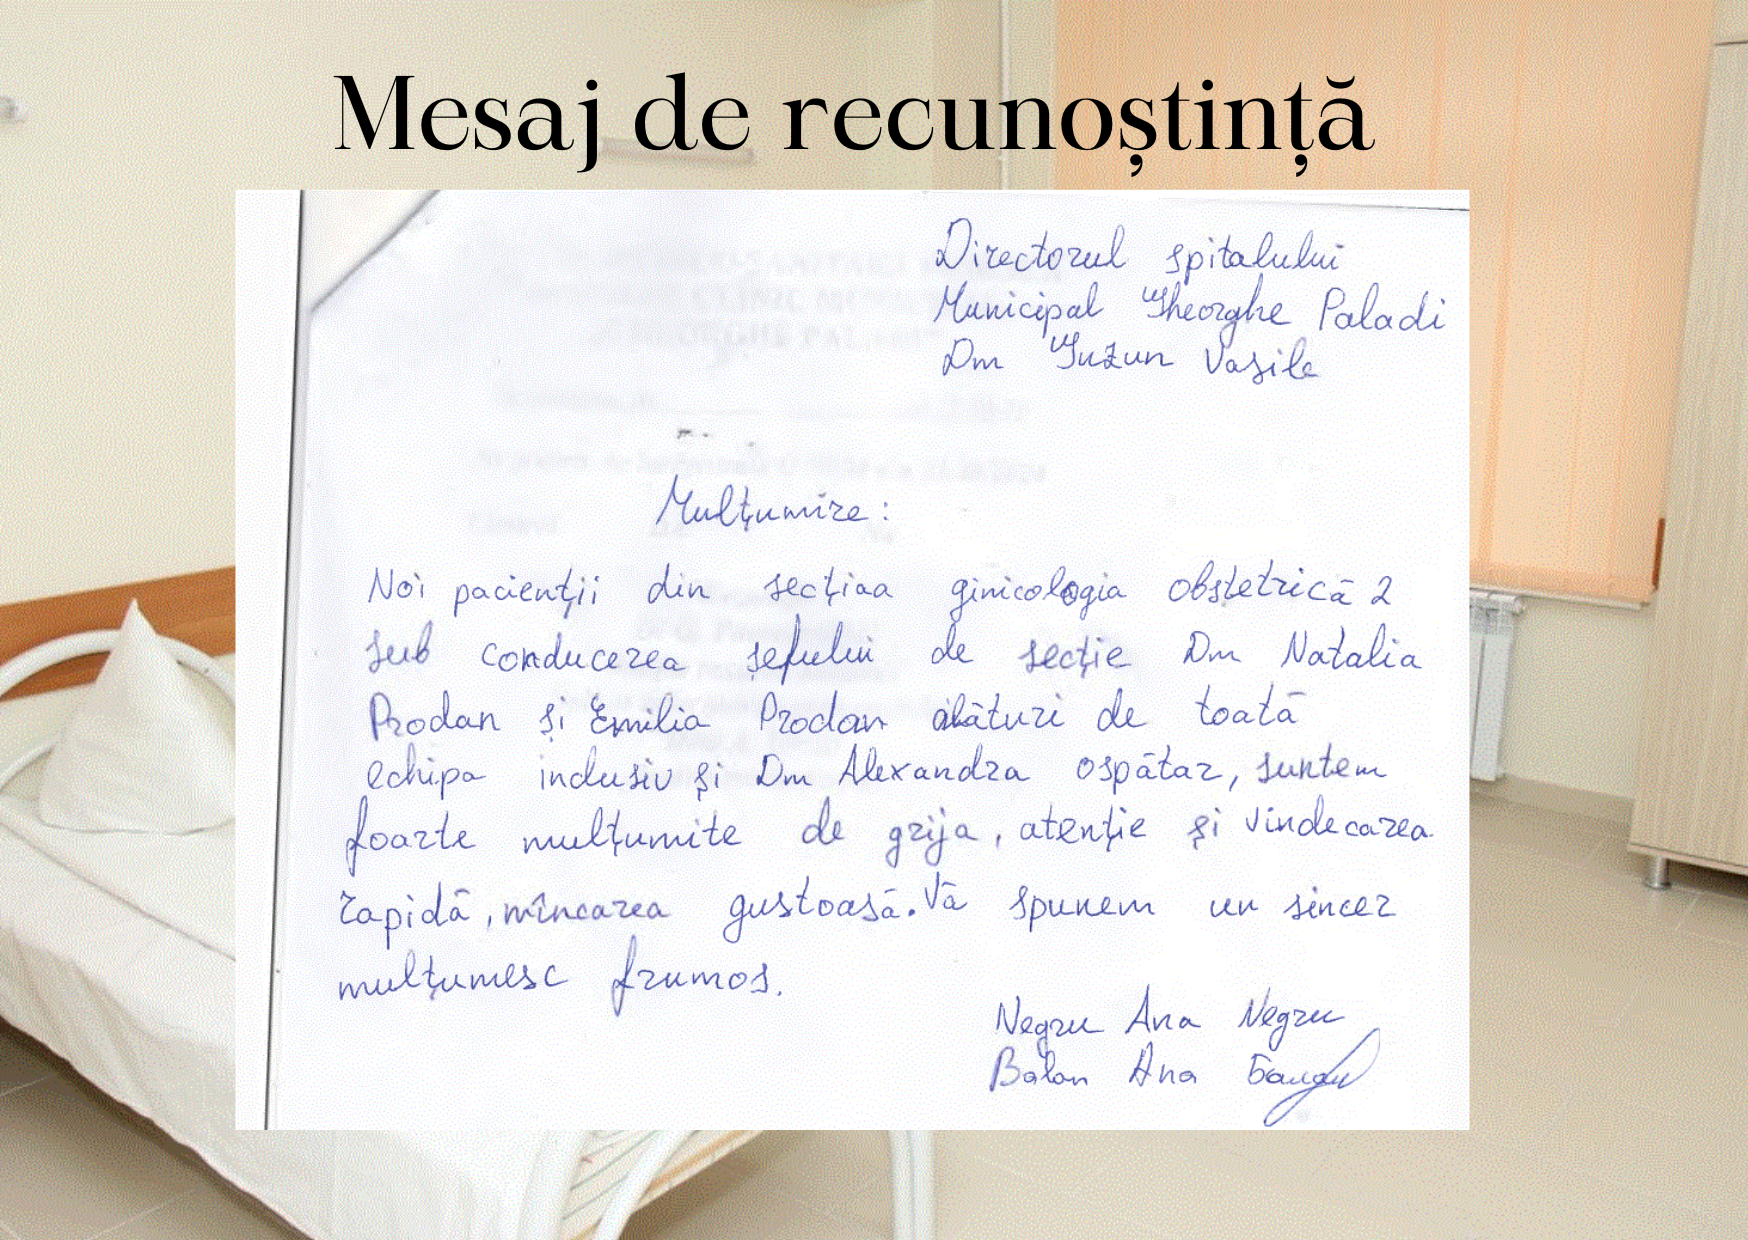 Mesaj de recunoștință
Directorul spitalului
Municipal Gheorghe Paladi
Dm Guzun Vasile
Mulțumire:
Noi pacienții din secțiaa ginicologia obstetrică 2
sub conducerea șefului de secție Dm Natalia
Prodan și Emilia Prodan alături de toată
echipa inclusiv și Dm Alexandra ospătar, suntem
foarte mulțumite de grija, atenție și vindecarea
rapidă, mîncarea gustoasă. Vă spunem un sincer
mulțumesc frumos.
Negru Ana Negru
Balan Ana